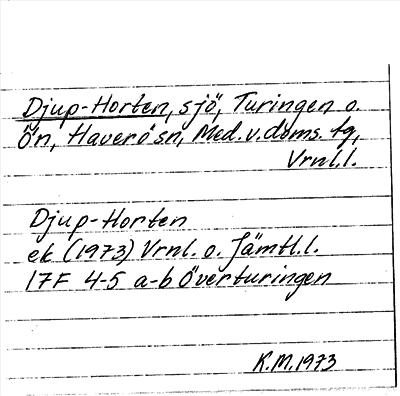 Djup-Horten, sjö, Turingen o.
Ön, Haverö sn, Med.v.doms. tg,
Vrnl.l.
Djup-Horten
ek (1973) Vrnl. o. Jämtl.l.
17F 4-5 a-b Överturingen
K.M.1973